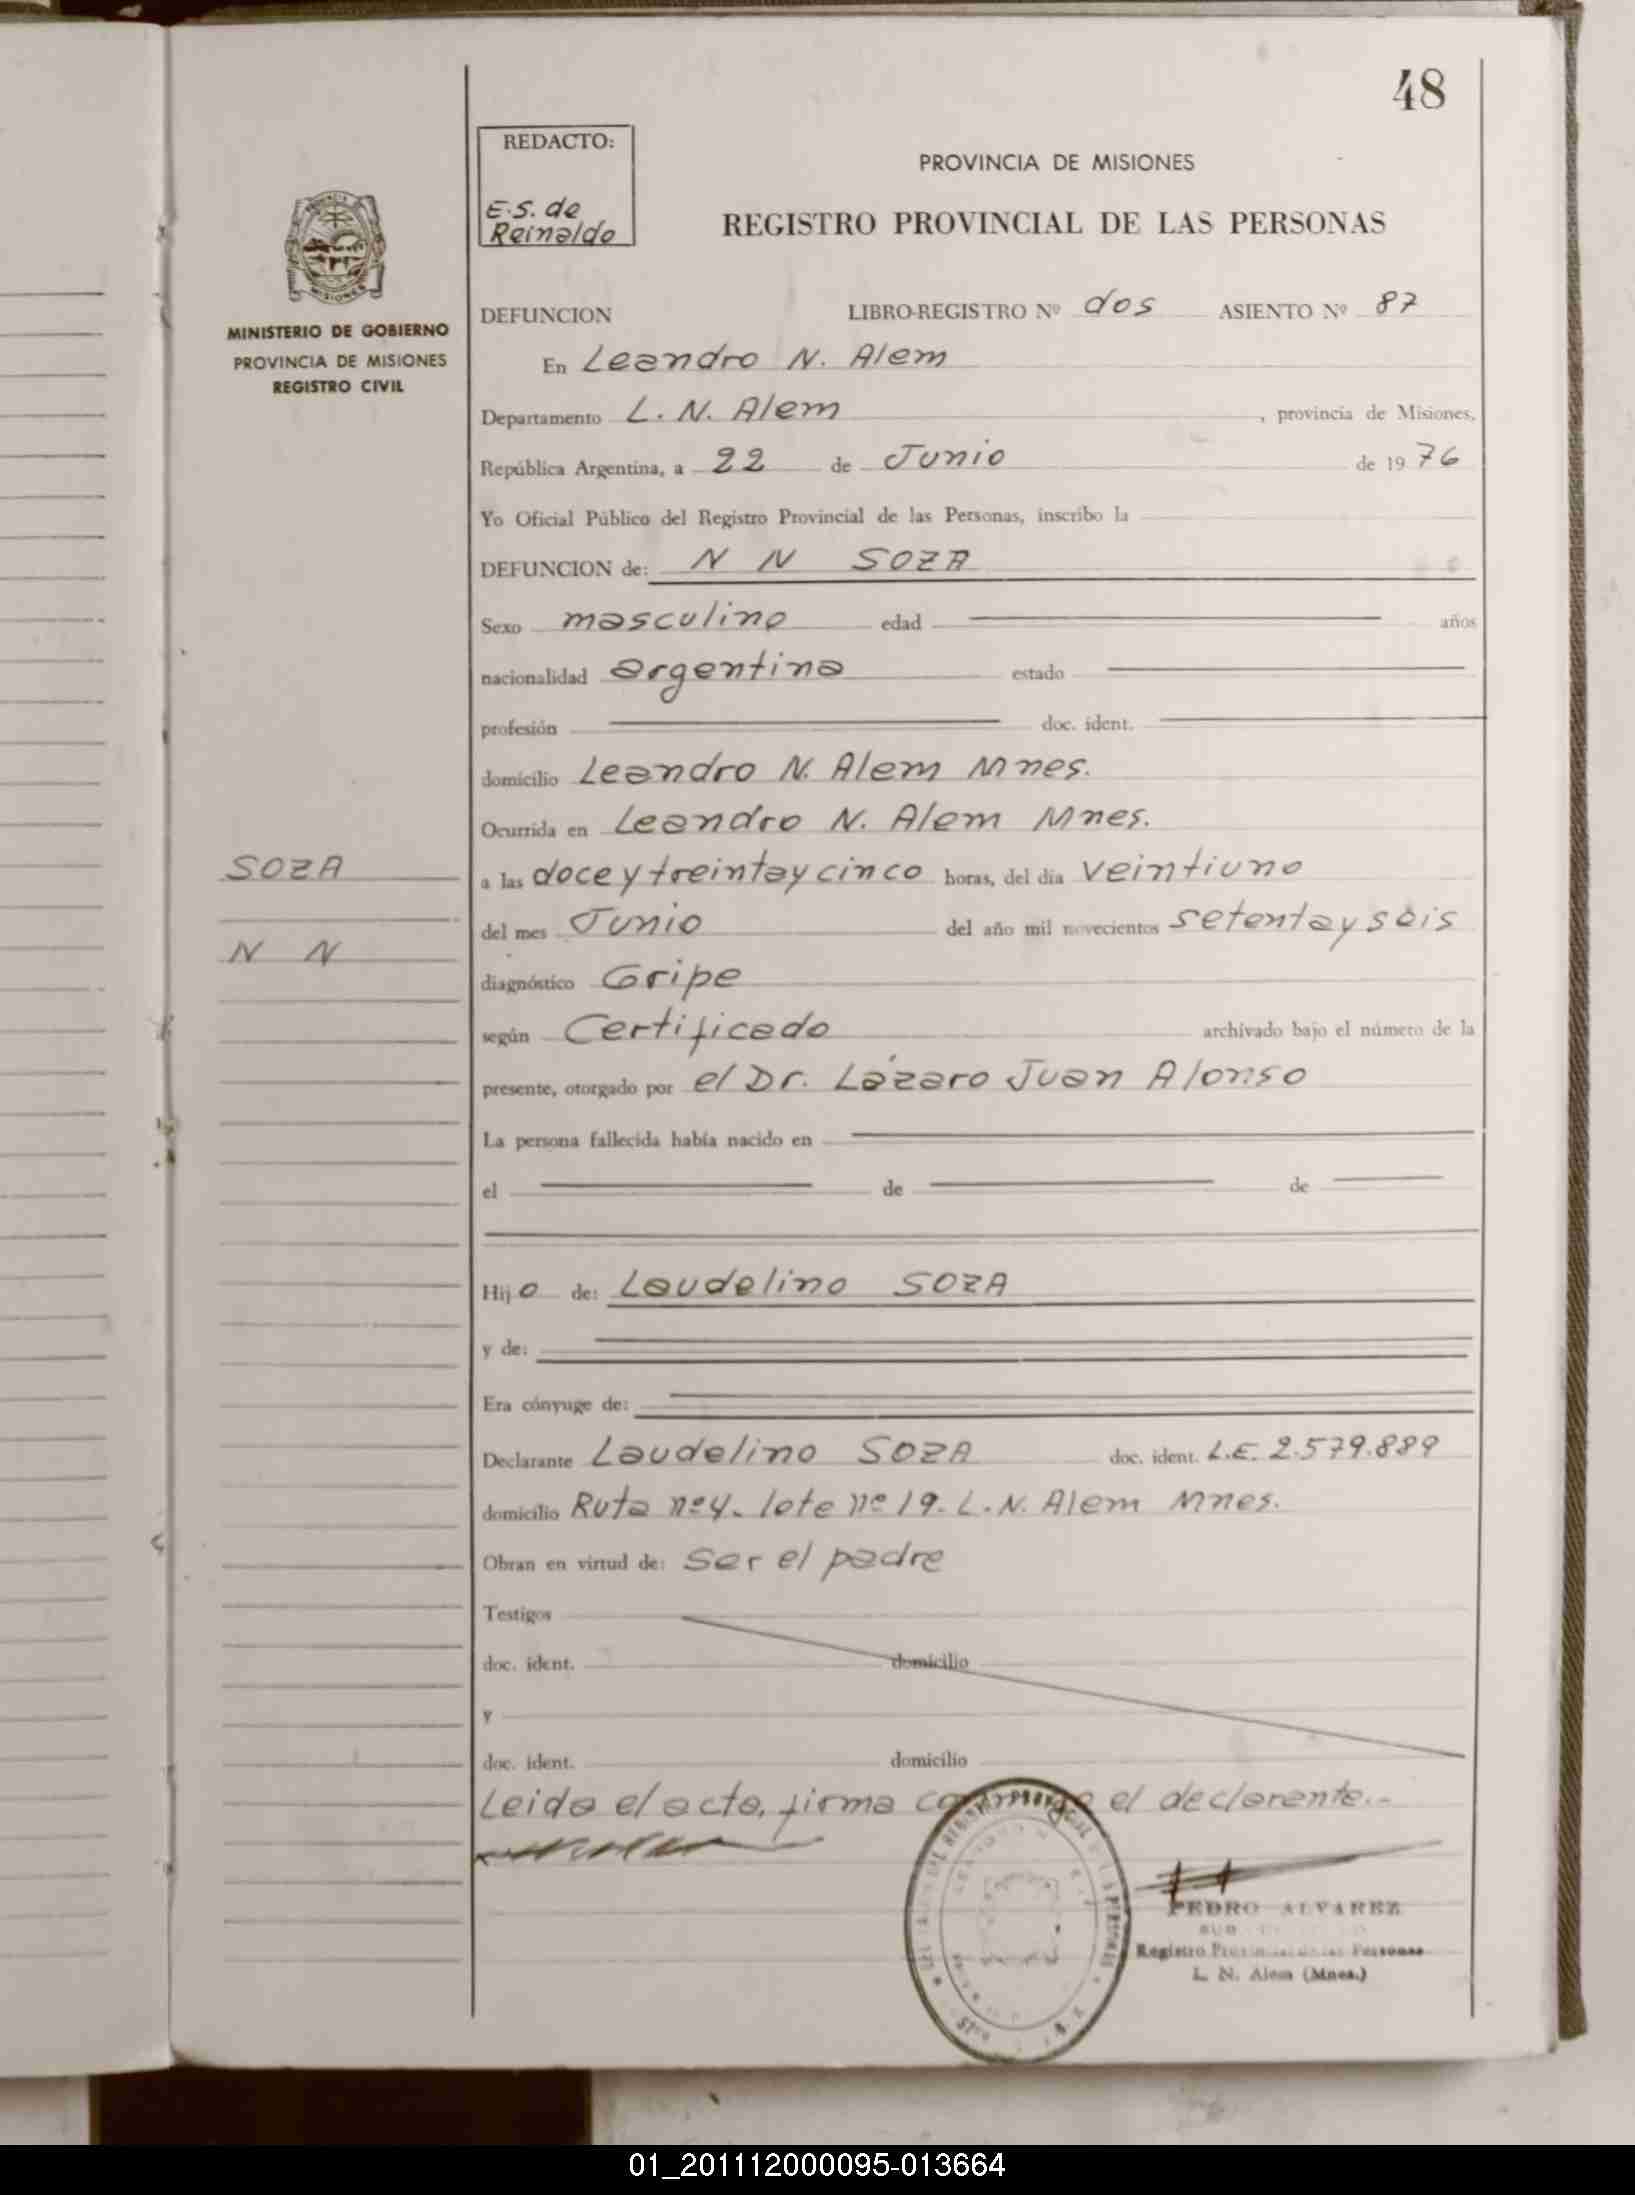 48
REDACTO:
E.S. de
Reinaldo
PROVINCIA DE MISIONES
REGISTRO PROVINCIAL DE LAS PERSONAS
MISIONES
MINISTERIO DE GOBIERNO
PROVINCIA DE MISIONES
REGISTRO CIVIL
DEFUNCION LIBRO-REGISTRO Nº dos ASIENTO Nº 87
En Leandro N. Alem
Departamento L. N. Alem , provincia de Misiones,
República Argentina, a 22 de Junio de 1976
Yo Oficial Público del Registro Provincial de las Personas, inscribo la
DEFUNCION de: N N SOZA
Sexo masculino edad años
nacionalidad argentina estado
profesión doc. ident.
domicilio Leandro N. Alem Mnes.
Ocurrida en Leandro N. Alem Mnes.
SOZA
N N
a las doce y treinta y cinco horas, del día veintiuno
del mes Junio del año mil novecientos setenta y seis
diagnóstico Gripe
según Certificado archivado bajo el número de la
presente, otorgado por el Dr. Lázaro Juan Alonso
La persona fallecida había nacido en
el de de
Hijo de: Laudelino SOZA
y de:
Era cónyuge de:
Declarante Laudelino SOZA doc. ident. L.E. 2.579.889
domicilio Ruta nº 4. lote nº 19. L. N. Alem Mnes.
Obran en virtud de: Ser el padre
Testigos
doc. ident. domicilio
y
doc. ident. domicilio
Leida el acta, firma el declarante.-
PEDRO ALVAREZ
SUB
Registro Provincial de las Personas
L. N. Alem (Mnes.)
01_201112000095-013664